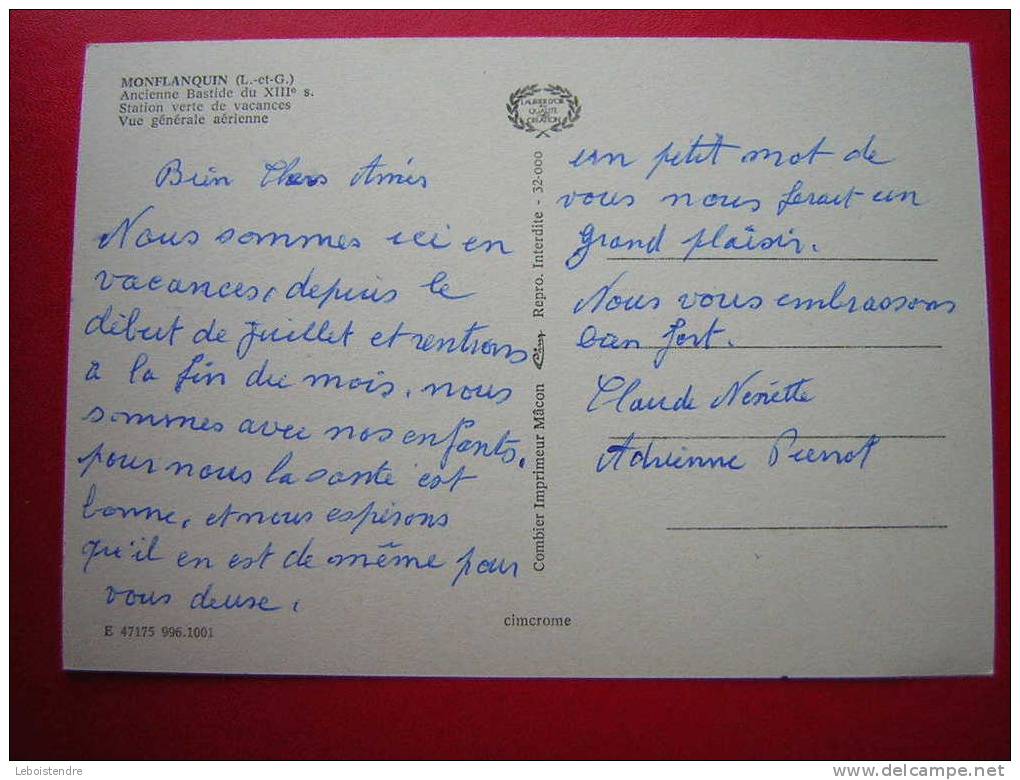 MONFLANQUIN (L.-et-G.)
Ancienne Bastide du XIIIe s.
Station verte de vacances
Vue générale aérienne
Bien Chers Amis
Nous sommes ici en
vacances, depuis le
début de juillet et rentrons
à la fin du mois, nous
sommes avec nos enfants.
pour nous la santé est
bonne, et nous espérons
qu'il en est de même pour
vous deuse,
E 47175 996.1001
LAURIER D'OR
QUALITÉ
CRÉATION
Combier Imprimeur Mâcon Cim Repro. Interdite - 32-000
cimcrome
un petit mot de
vous nous ferait un
grand plaisir.
Nous vous embrassons
bien fort.
Claude
Adrienne Pierrot
Leboistendre
delcampe.net